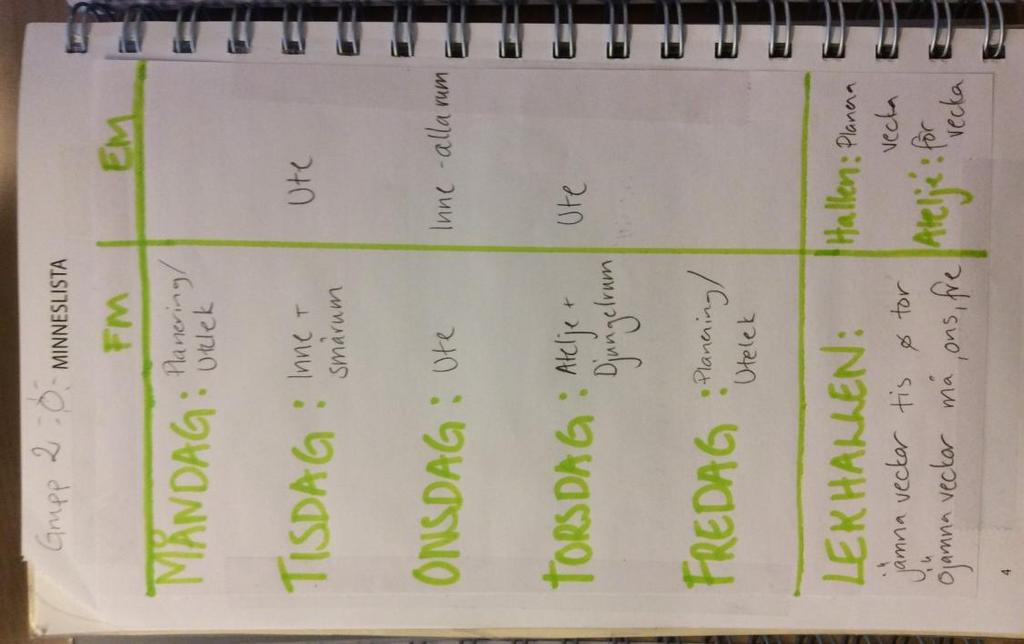 Grupp 2
MINNESLISTA
FM EM
MÅNDAG: Planering/
Utelek
TISDAG: Inne + Ute
smårum
ONSDAG: Ute Inne - alla rum
TORSDAG: Atelje + Ute
Djungelrum
FREDAG: Planening/
Utelek
LEKHALLEN: Hallen: Planera
jämna veckor tis & tor vecka
Ojämna veckor må, ons, fre Ateljé: för
vecka
4